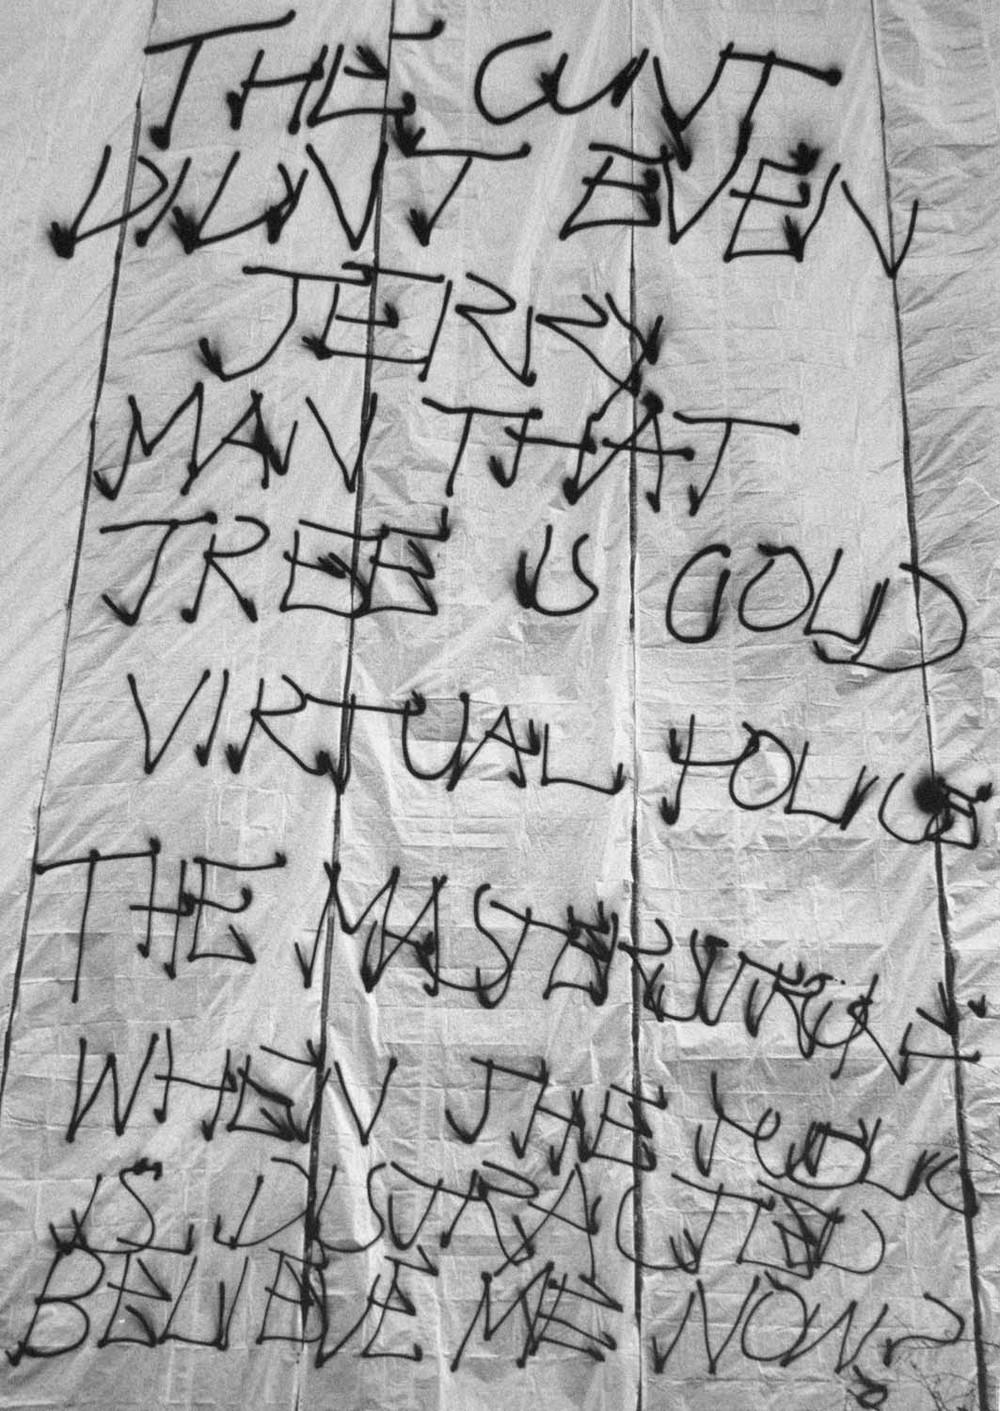 THE CUNT
DIDN'T EVEN
JERRY
MAN THAT
TREE IS GOLD
VIRTUAL POLICE
THE MASTER
WHEN THE PUBLIC
IS DISTRACTED
BELIEVE ME NOW?